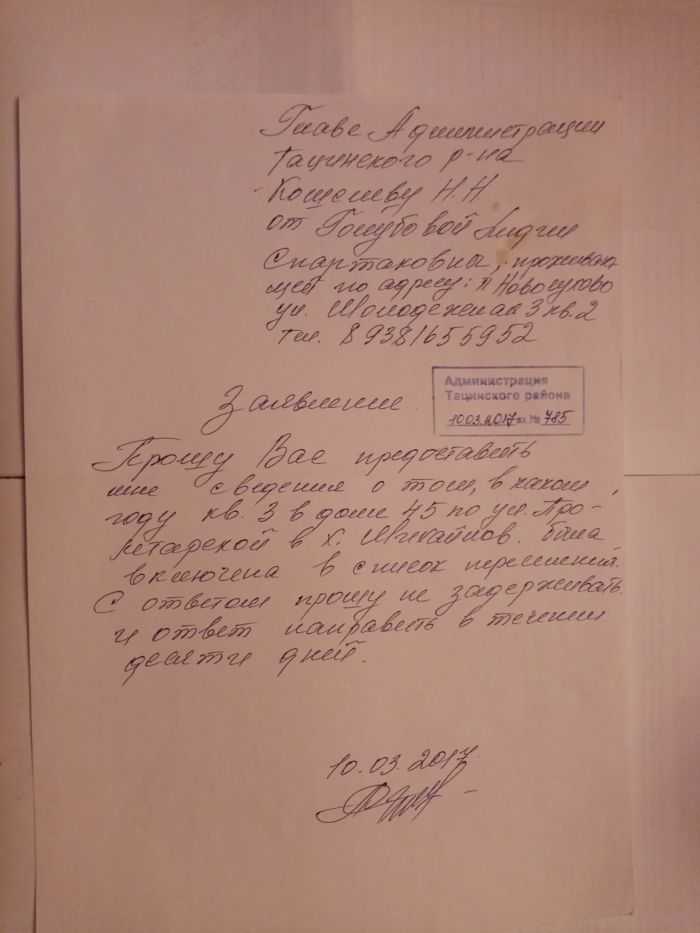 Главе Администрации
Тацинского р-на
Кошелеву Н.Н
от Голубовой Лидии
Спартаковны, проживаю
щей по адресу: п Новосухово
ул. Молодежная 3 кв. 2
тел. 89381655952
Администрация
Тацинского района
10.03.2017 вх. № 785
Заявление
Прошу Вас предоставить
мне сведения о том, в каком
году кв. 3 в доме 45 по ул. Про-
летарской в х. Михайлов. была
включена в список переселений.
С ответом прошу не задерживать
и ответ направить в течении
десяти дней.
10.03.2017